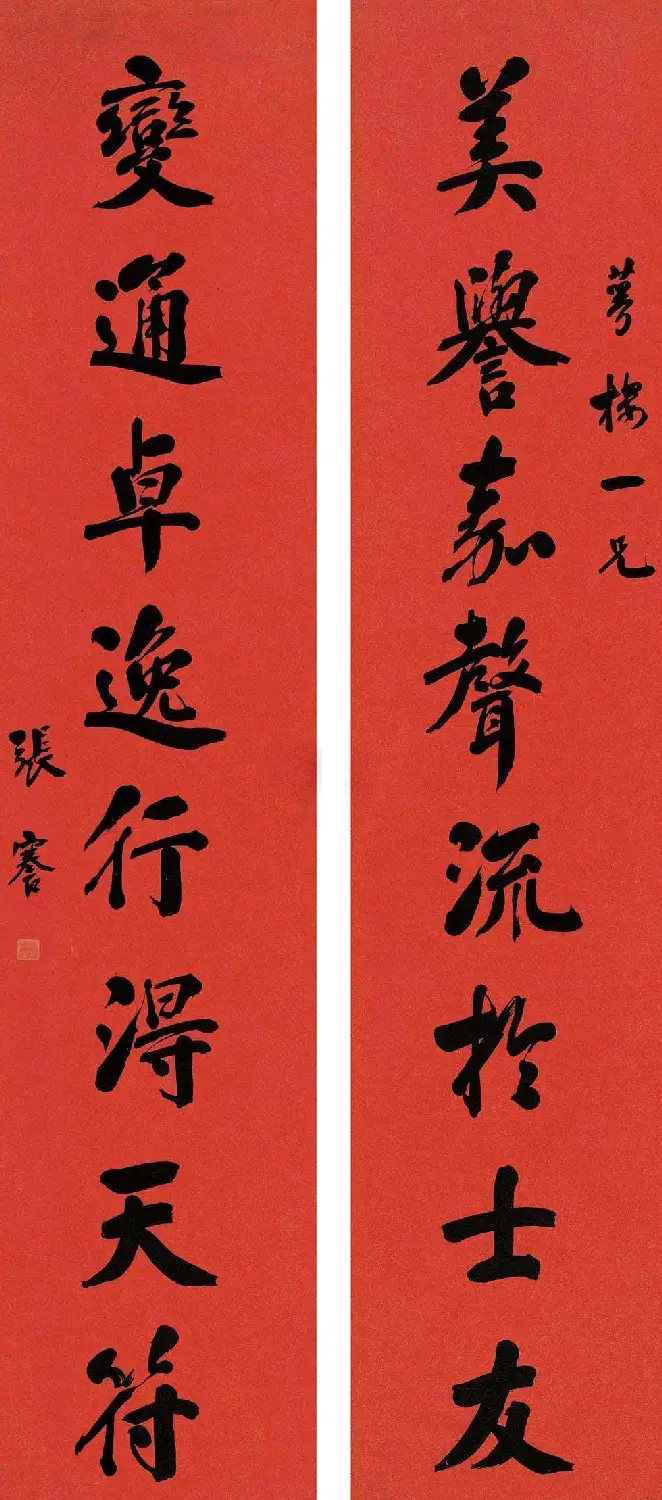 萼 一兄
美譽嘉聲流於士友
變通卓逸行得天符
張謇